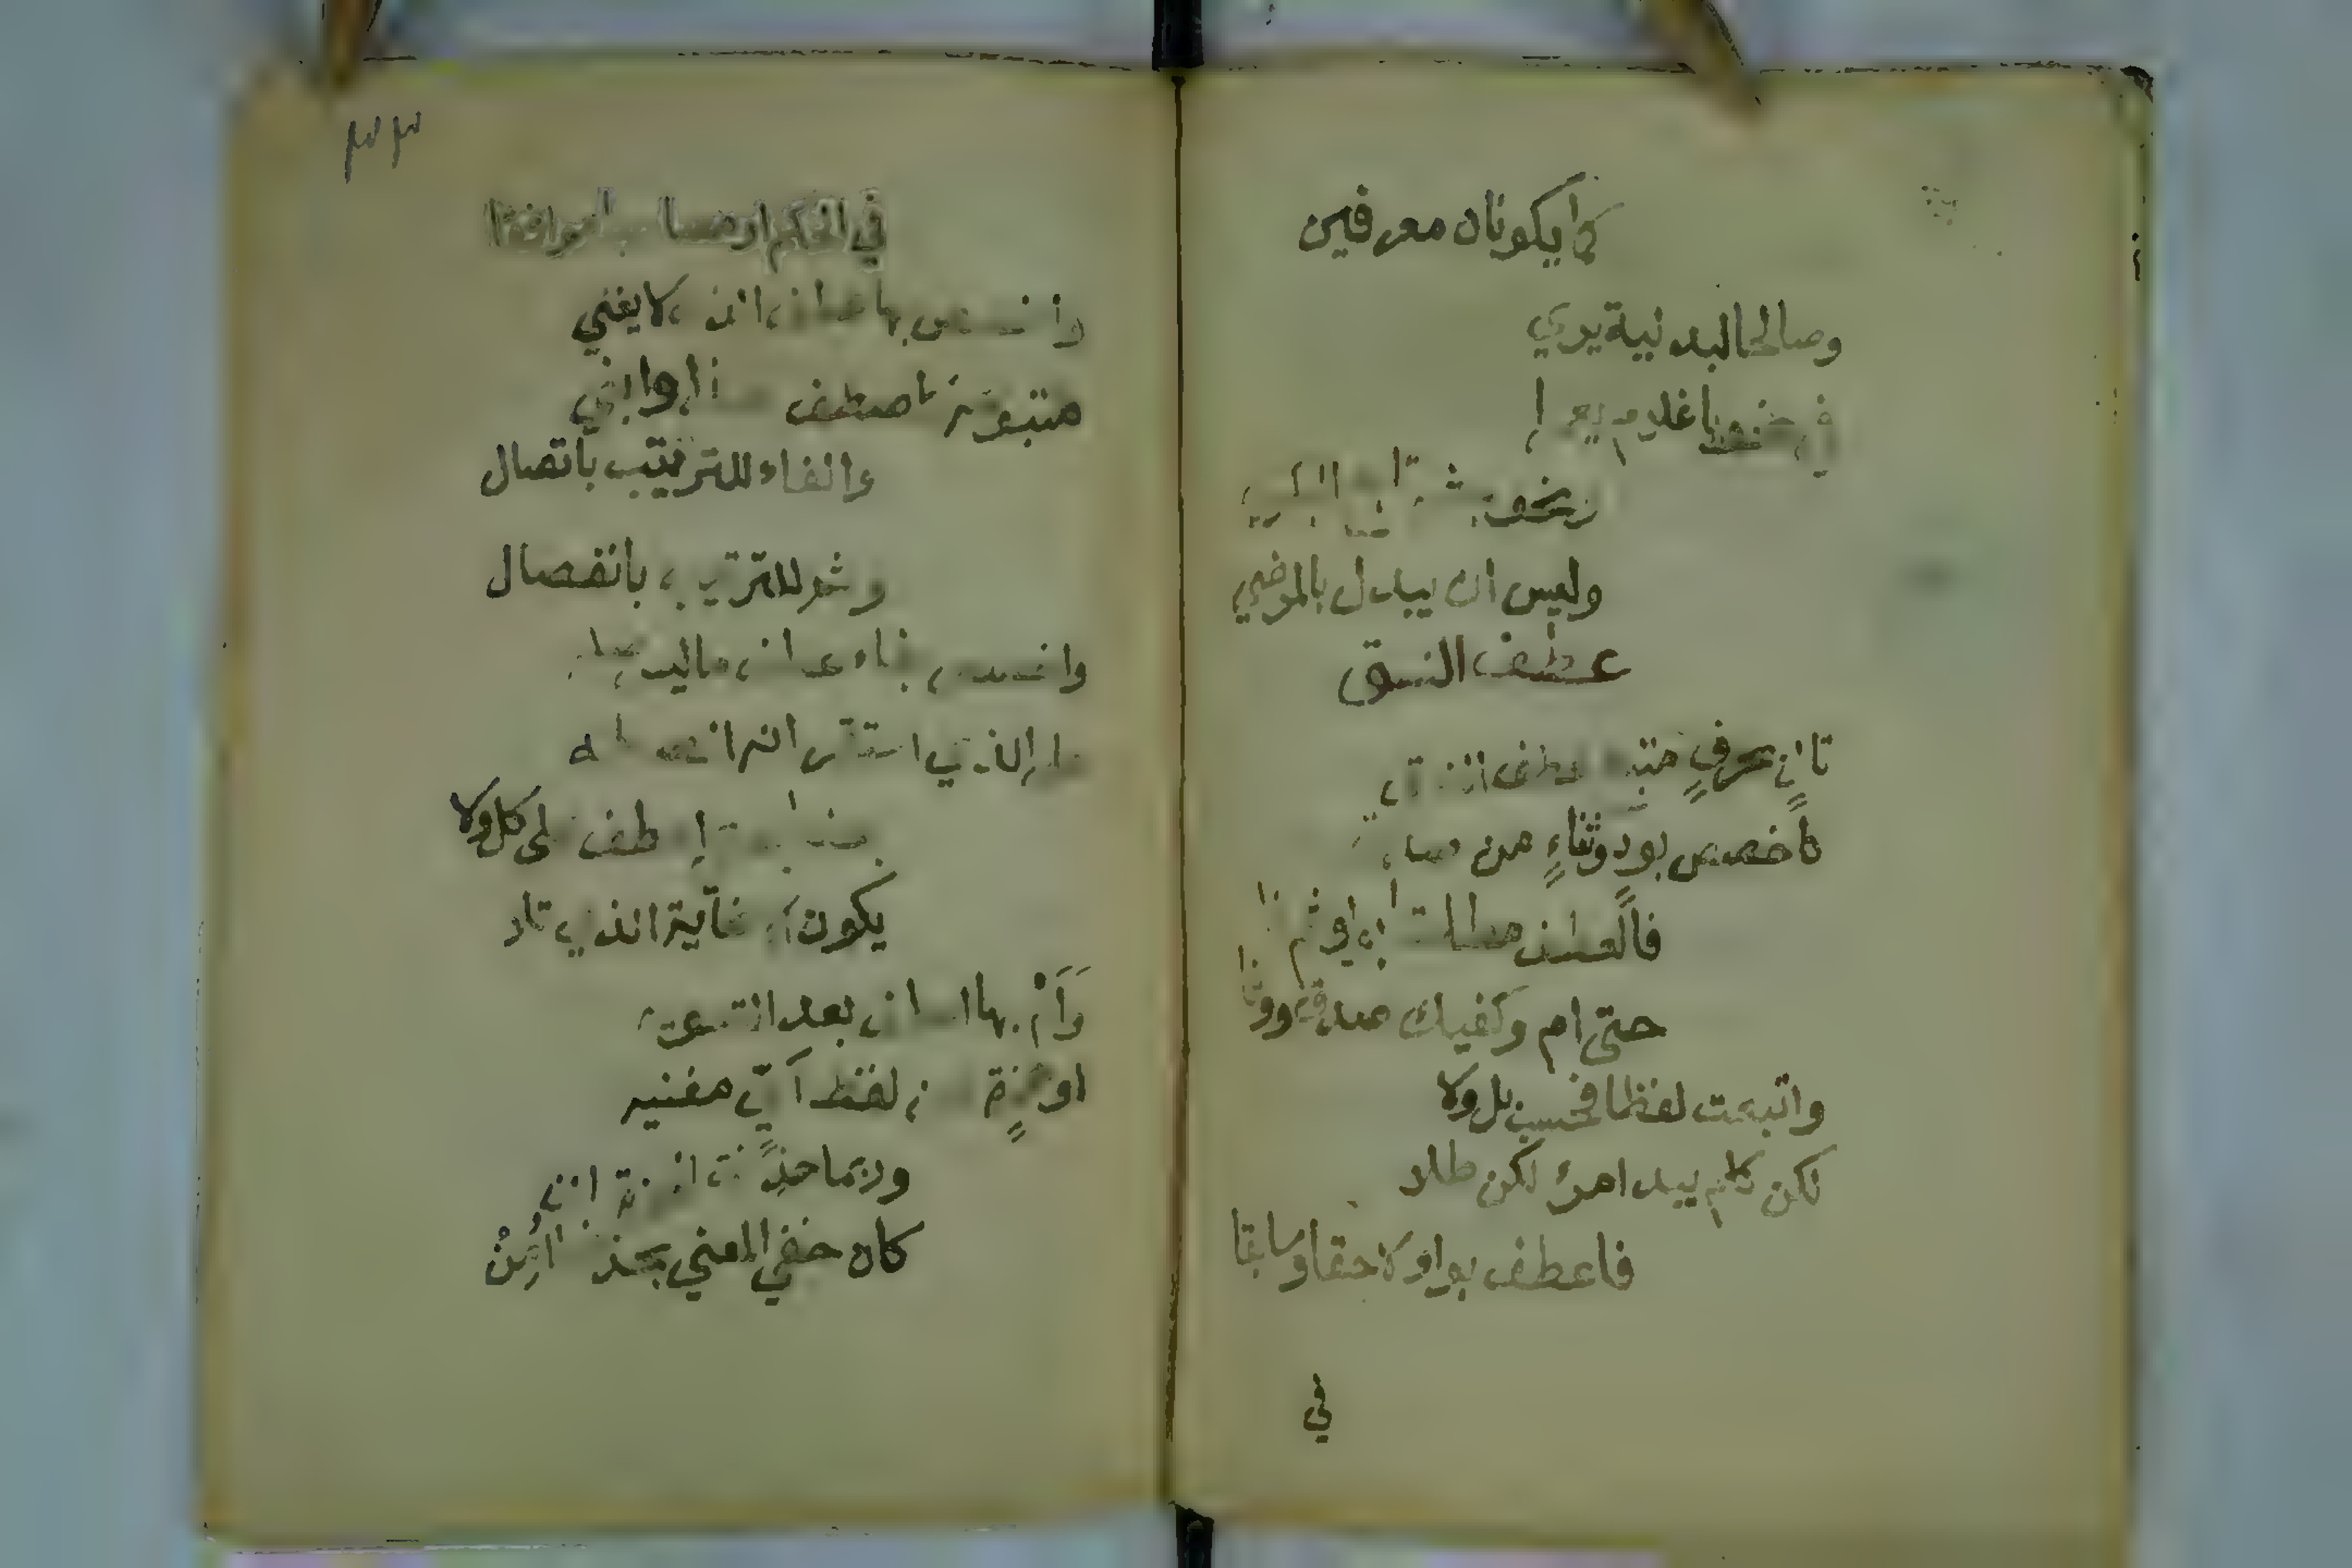 كما يكونان معرفين
وصالحا لبدلية يري
في نحو يا غلام يعمرا
ونحو بشر تابع البكري
وليس ان يبدل بالمرضي
عطف النسق
تال بحرف متبع عطف النسق
كاخصص بود وثناء من صدق
فالعطف مطلقا بواو ثم فا
حتى ام او كفيك صدق ووفا
واتبعت لفظا فحسب بل ولا
لكن كلم يبد امرؤ لكن طلا
فاعطف بواو لاحقا او سابقا
في
٣٣
في الحكم او مصاحبا موافقا
واخصص بها عطف الذي لا يغني
متبوعه كاصطف هذا وابني
والفاء للترتيب باتصال
وثم للترتيب بانفصال
واخصص بفاء عطف ما ليس صله
على الذي استقر انه الصله
بعضا بحتى اعطف على كل ولا
يكون الا غاية الذي تلا
وَأَمْ بها اعطف بعد همز
او همزة عن لفظ أيّ مغنيه
وربما حذفت الهمزة ان
كان خفي المعني بحذفها أُمِنْ